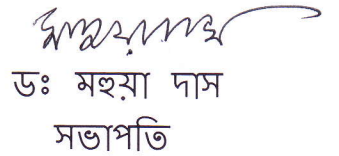 ডঃ মহুয়া দাস
সভাপতি